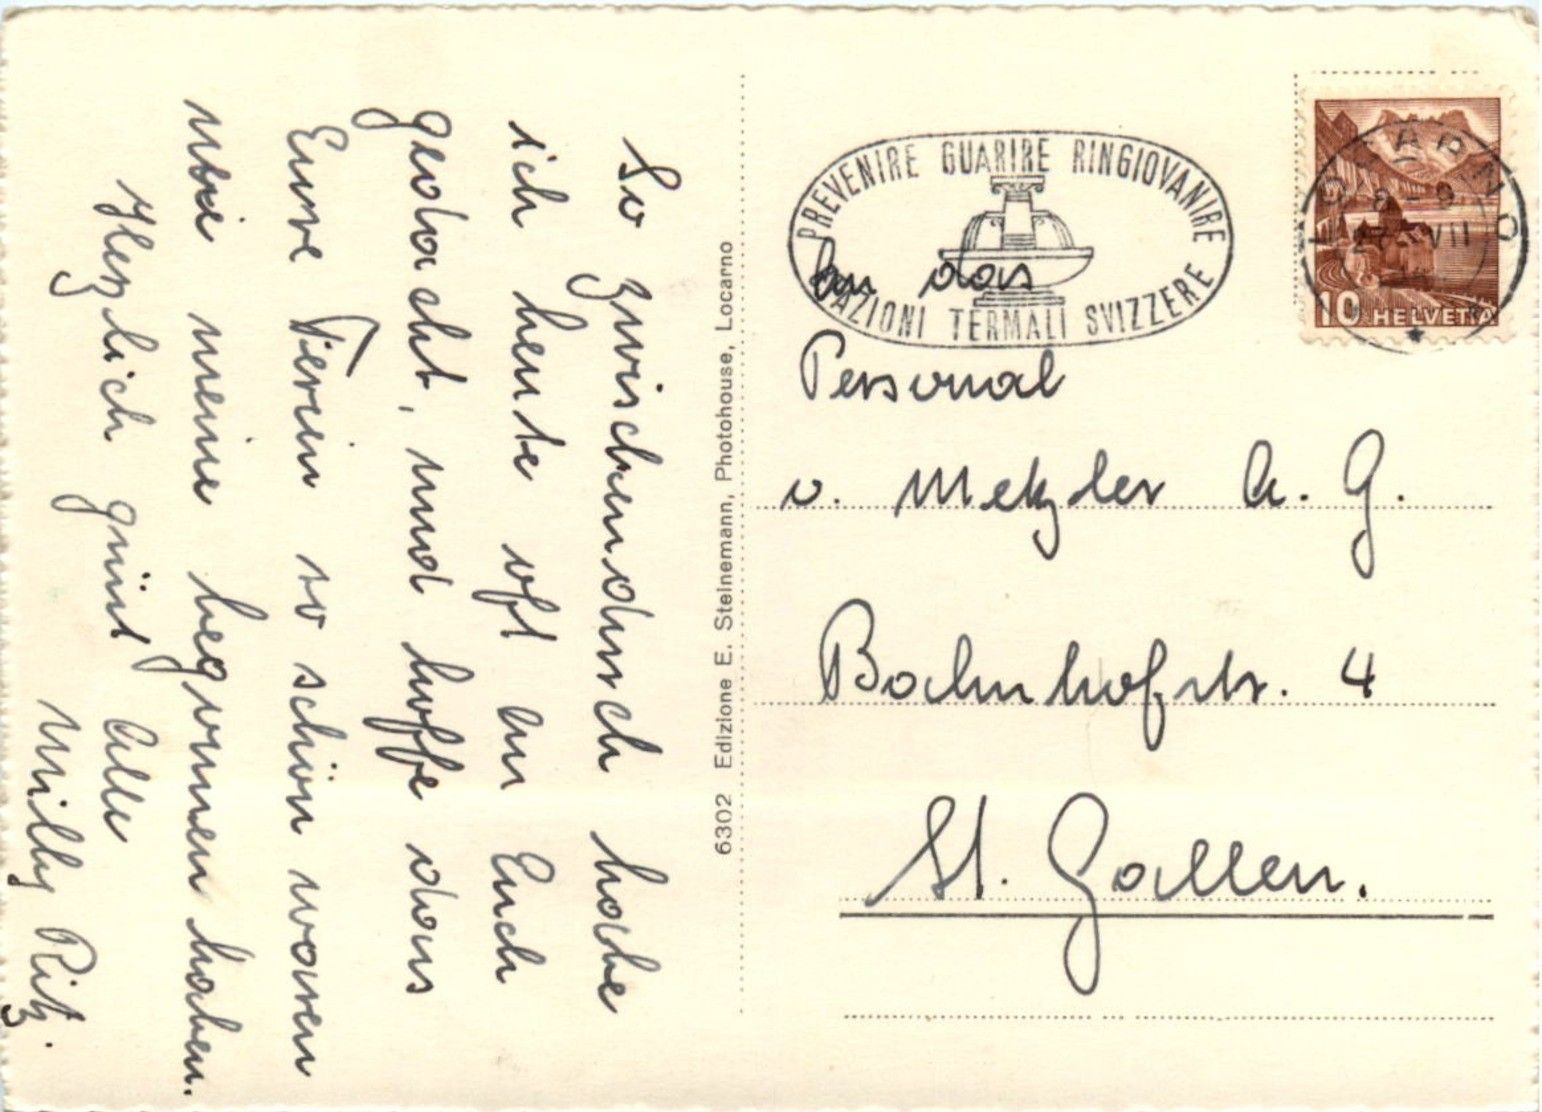 So zwischendurch habe
ich heute oft an Euch
gedacht, und hoffe dass
Eure Ferien so schön waren
wie meine begonnen haben.
Herzlich grüsst alle
Milly Ritz.
6302 Edizione E. Steinemann, Photohouse, Locarno
PREVENIRE GUARIRE RINGIOVANIRE
STAZIONI TERMALI SVIZZERE
LOCARNO
8-9
VII
10 HELVETIA
An das
Personal
v. Metzler A. G.
Bahnhofstr. 4
St. Gallen.